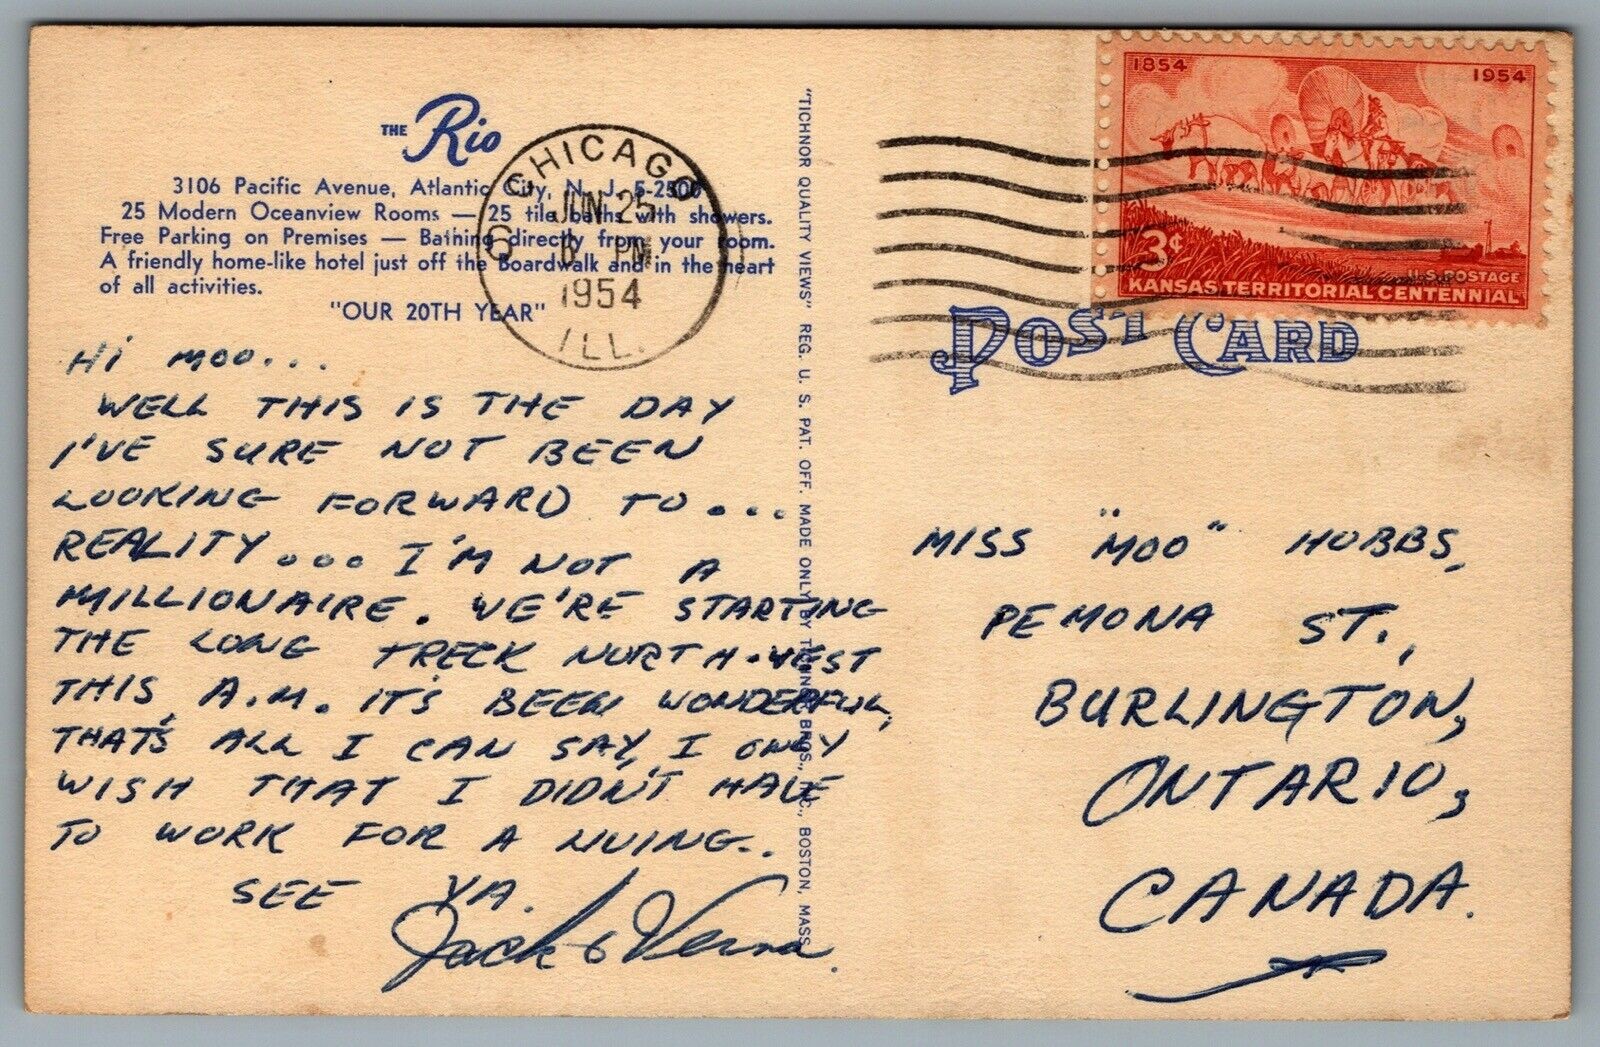 THE Rio
3106 Pacific Avenue, Atlantic City, N. J. 5-2500
25 Modern Oceanview Rooms — 25 tile baths with showers.
Free Parking on Premises — Bathing directly from your room.
A friendly home-like hotel just off the Boardwalk and in the heart
of all activities.
"OUR 20TH YEAR"
CHICAGO
JUN 25
6 PM
1954
ILL.
HI MOO...
WELL THIS IS THE DAY
I'VE SURE NOT BEEN
LOOKING FORWARD TO...
REALITY... I'M NOT A
MILLIONAIRE. WE'RE STARTING
THE LONG TRECK NORTH-WEST
THIS A.M. IT'S BEEN WONDERFUL,
THAT'S ALL I CAN SAY, I ONLY
WISH THAT I DIDN'T HAVE
TO WORK FOR A LIVING..
SEE YA.
Jack & Verna.
"TICHNOR QUALITY VIEWS" REG. U. S. PAT. OFF. MADE ONLY BY TICHNOR BROS., INC., BOSTON, MASS.
1854 1954
3¢
U.S. POSTAGE
KANSAS TERRITORIAL CENTENNIAL
POST CARD
MISS "MOO" HOBBS,
PEMONA ST.,
BURLINGTON,
ONTARIO,
CANADA.